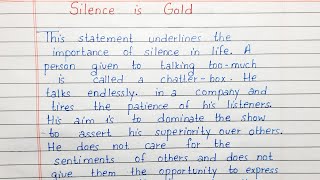 Silence is Gold
This statement underlines the
importance of silence in life. A
person given to talking too-much
is called a chatter-box. He
talks endlessly. in a company and
tires the patience of his listeners.
His aim is to dominate the show
to assert his superiority over others.
He does not care for the
sentiments of others and does not
give them the opportunity to express